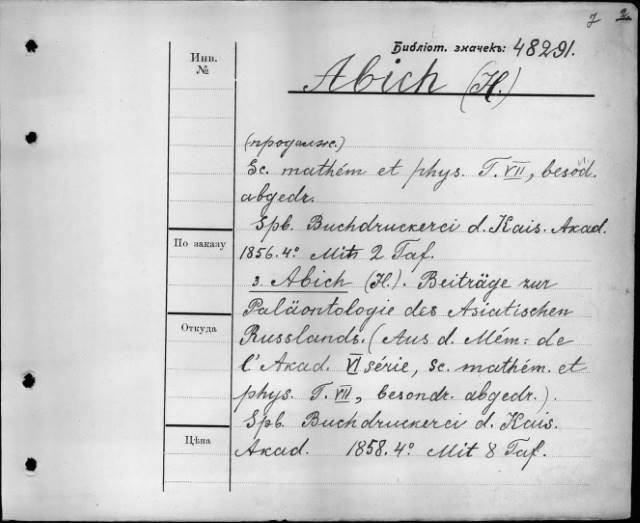 2
Библіот. значекъ: 48291.
Инв.
№
Abich (H.)
(продолж.)
Sc. mathém et phys. T. VII, besond.
abgedr.
Spb. Buchdruckerei d. Kais. Akad.
По заказу
1856. 4º Mit 2 Taf.
3. Abich (H.). Beiträge zur
Paläontologie des Asiatischen
Откуда
Russlands. (Aus d. Mém: de
l'Akad. VI série, Sc. mathém. et
phys. T. VII, besondr. abgedr.).
Spb. Buchdruckerei d. Kais.
Цѣна
Akad. 1858. 4º Mit 8 Taf.